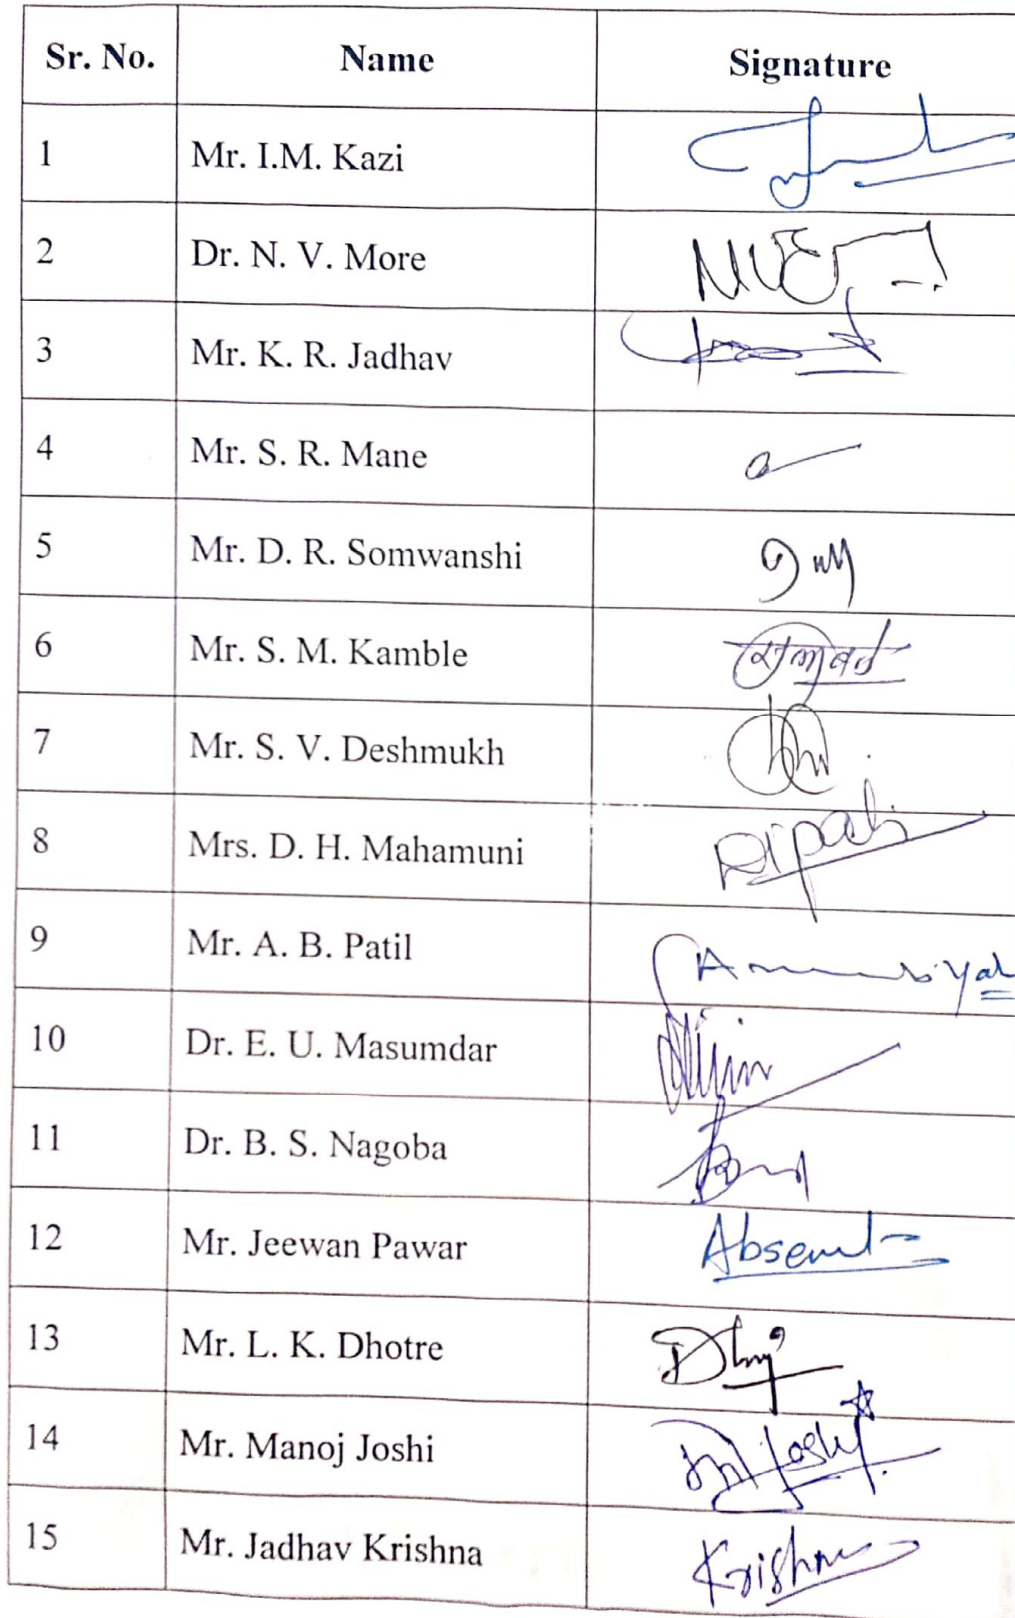 Sr. No. Name Signature
1 Mr. I.M. Kazi
2 Dr. N. V. More
3 Mr. K. R. Jadhav
4 Mr. S. R. Mane
5 Mr. D. R. Somwanshi
6 Mr. S. M. Kamble
7 Mr. S. V. Deshmukh
8 Mrs. D. H. Mahamuni
9 Mr. A. B. Patil
10 Dr. E. U. Masumdar
11 Dr. B. S. Nagoba
12 Mr. Jeewan Pawar Absent
13 Mr. L. K. Dhotre
14 Mr. Manoj Joshi
15 Mr. Jadhav Krishna Krishna